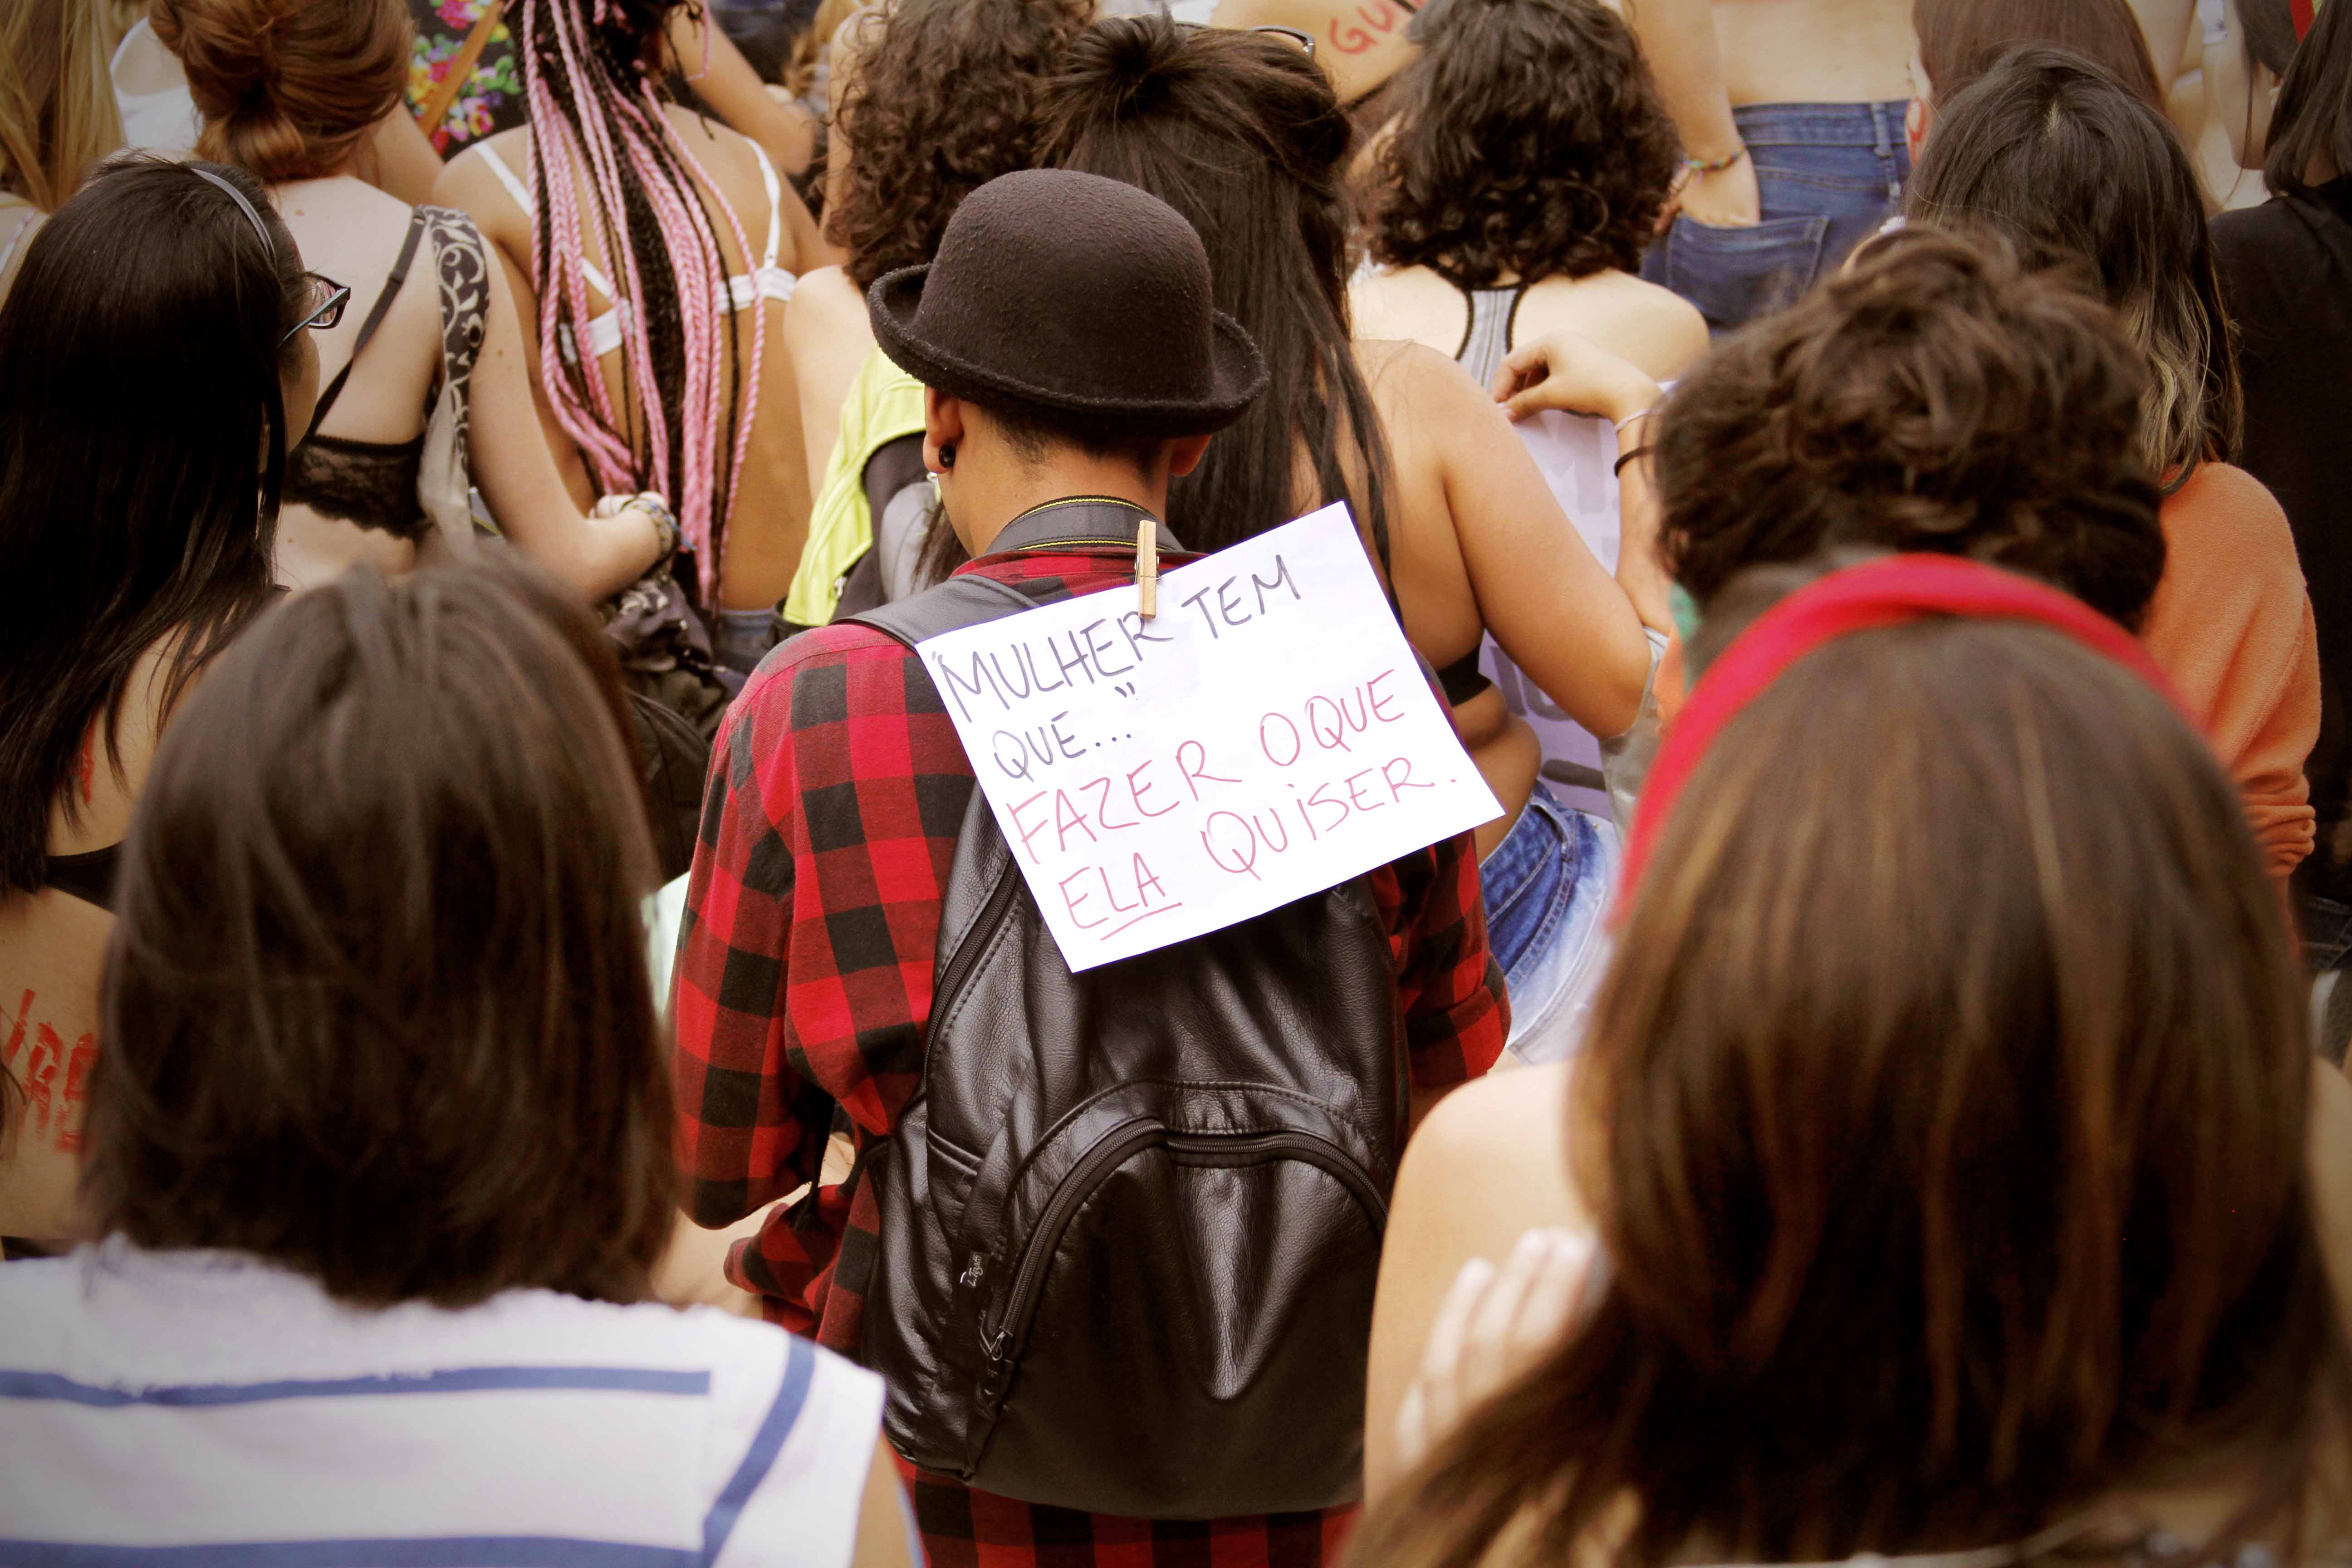 "MULHER TEM
QUE..."
FAZER O QUE
ELA QUISER.